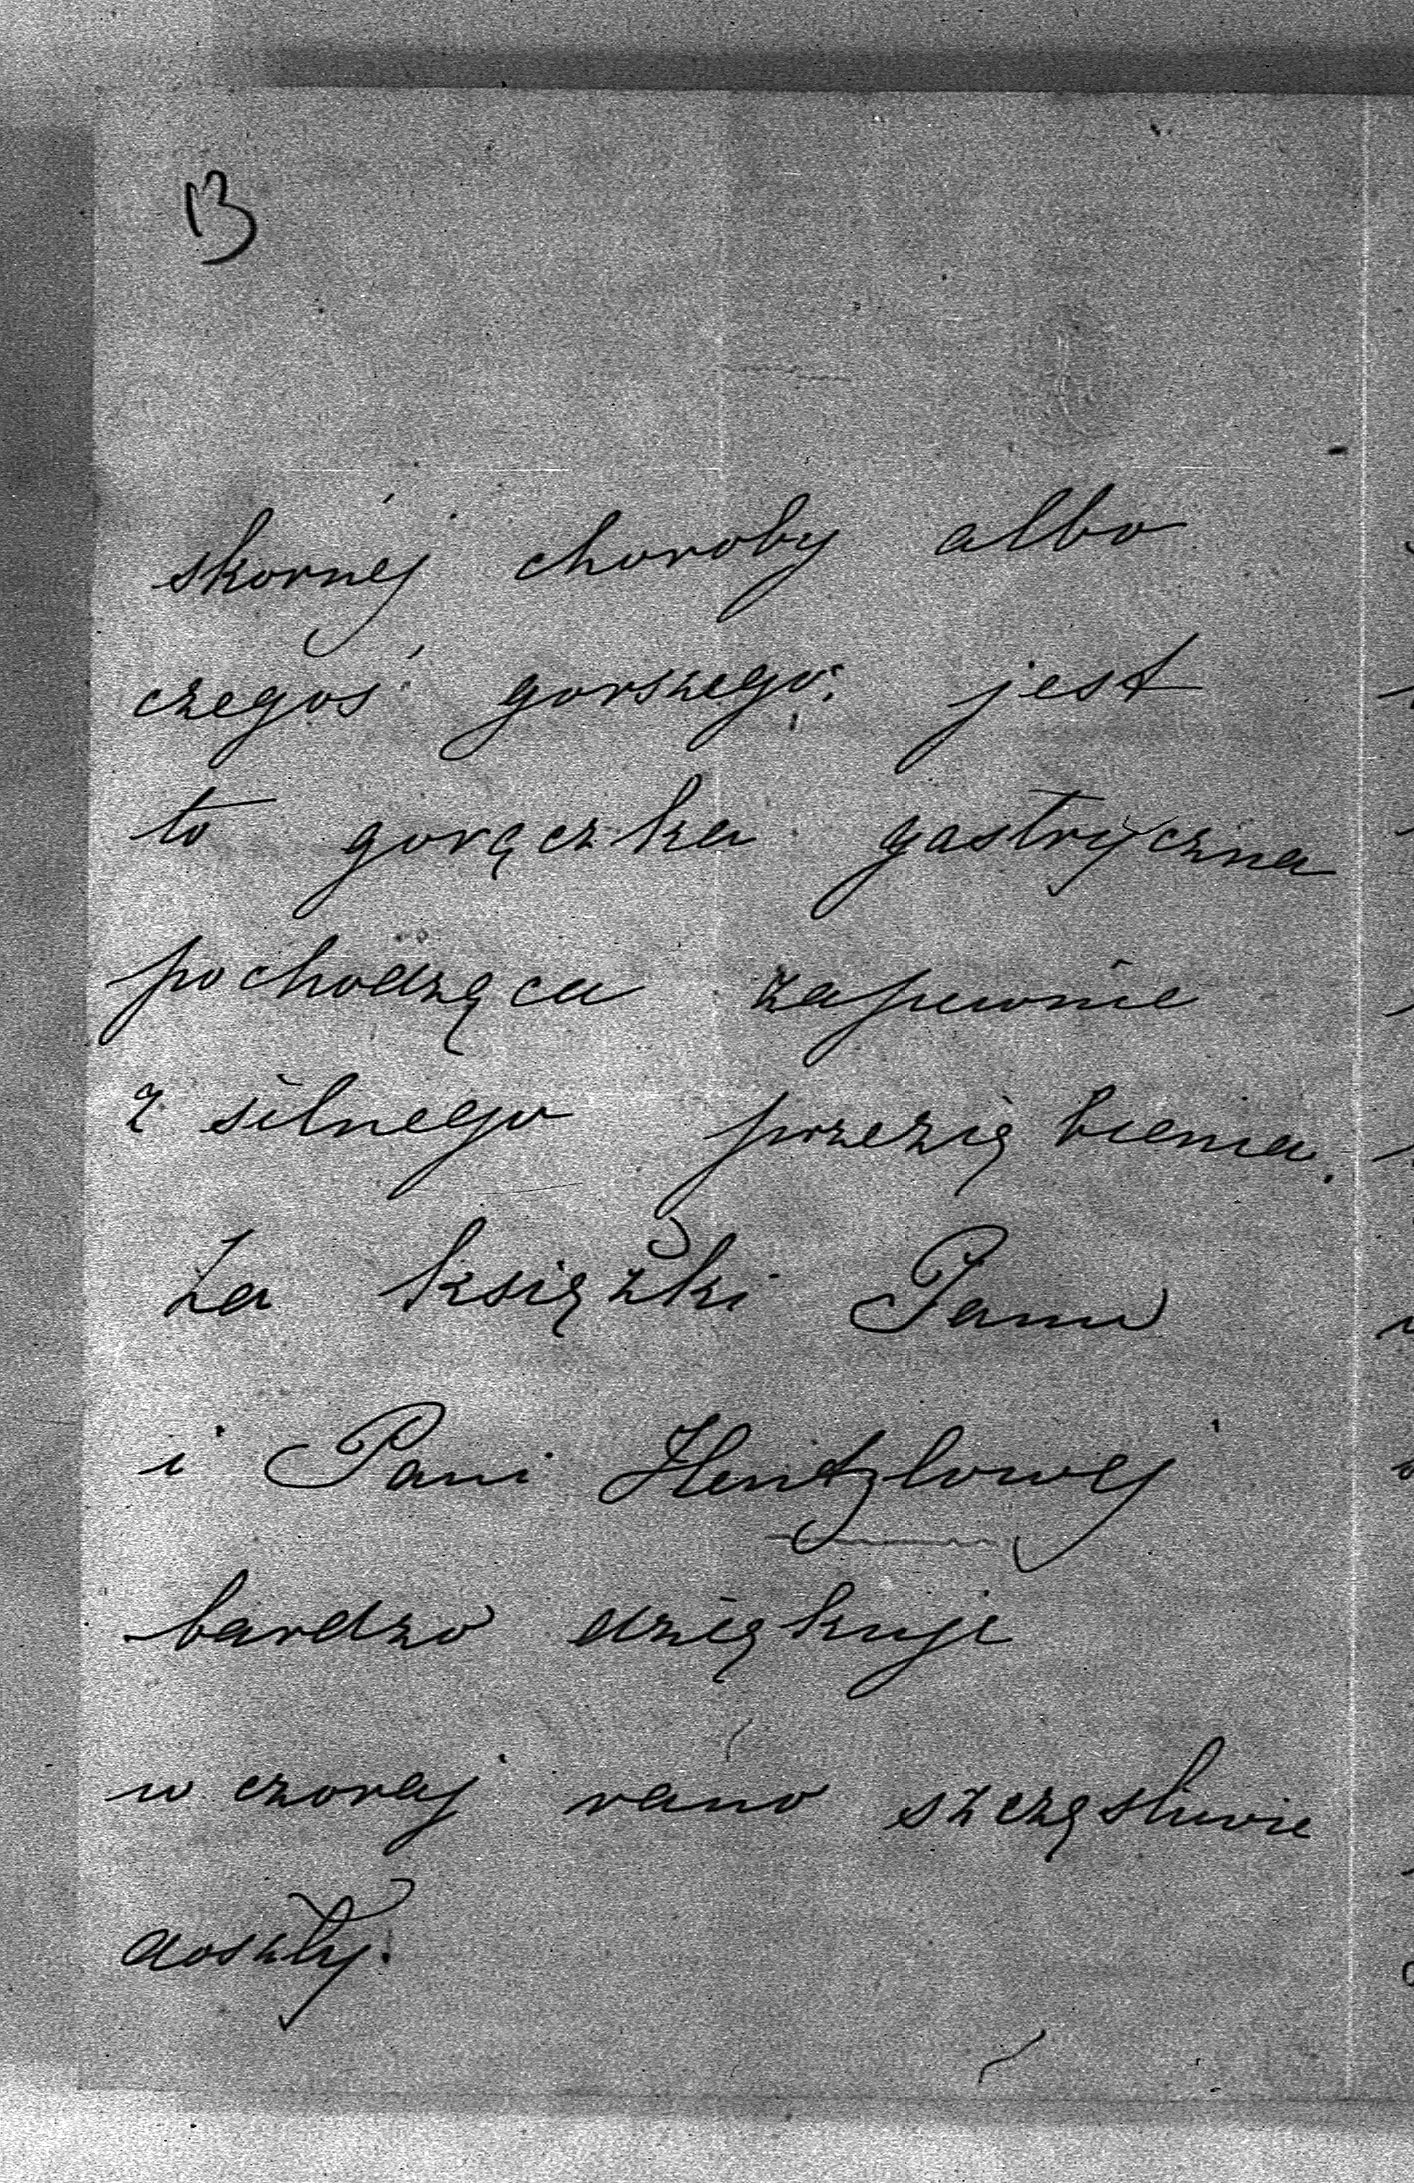 13
skornéj choroby albo
czegoś gorszego; jest
to gorączka gastryczna
pochodząca zapewnie
z silnego przeziębienia.
Za książki Panu
i Pani Hentzlowej
bardzo dziękuje
wczoraj rano szczęsliwie
doszły.